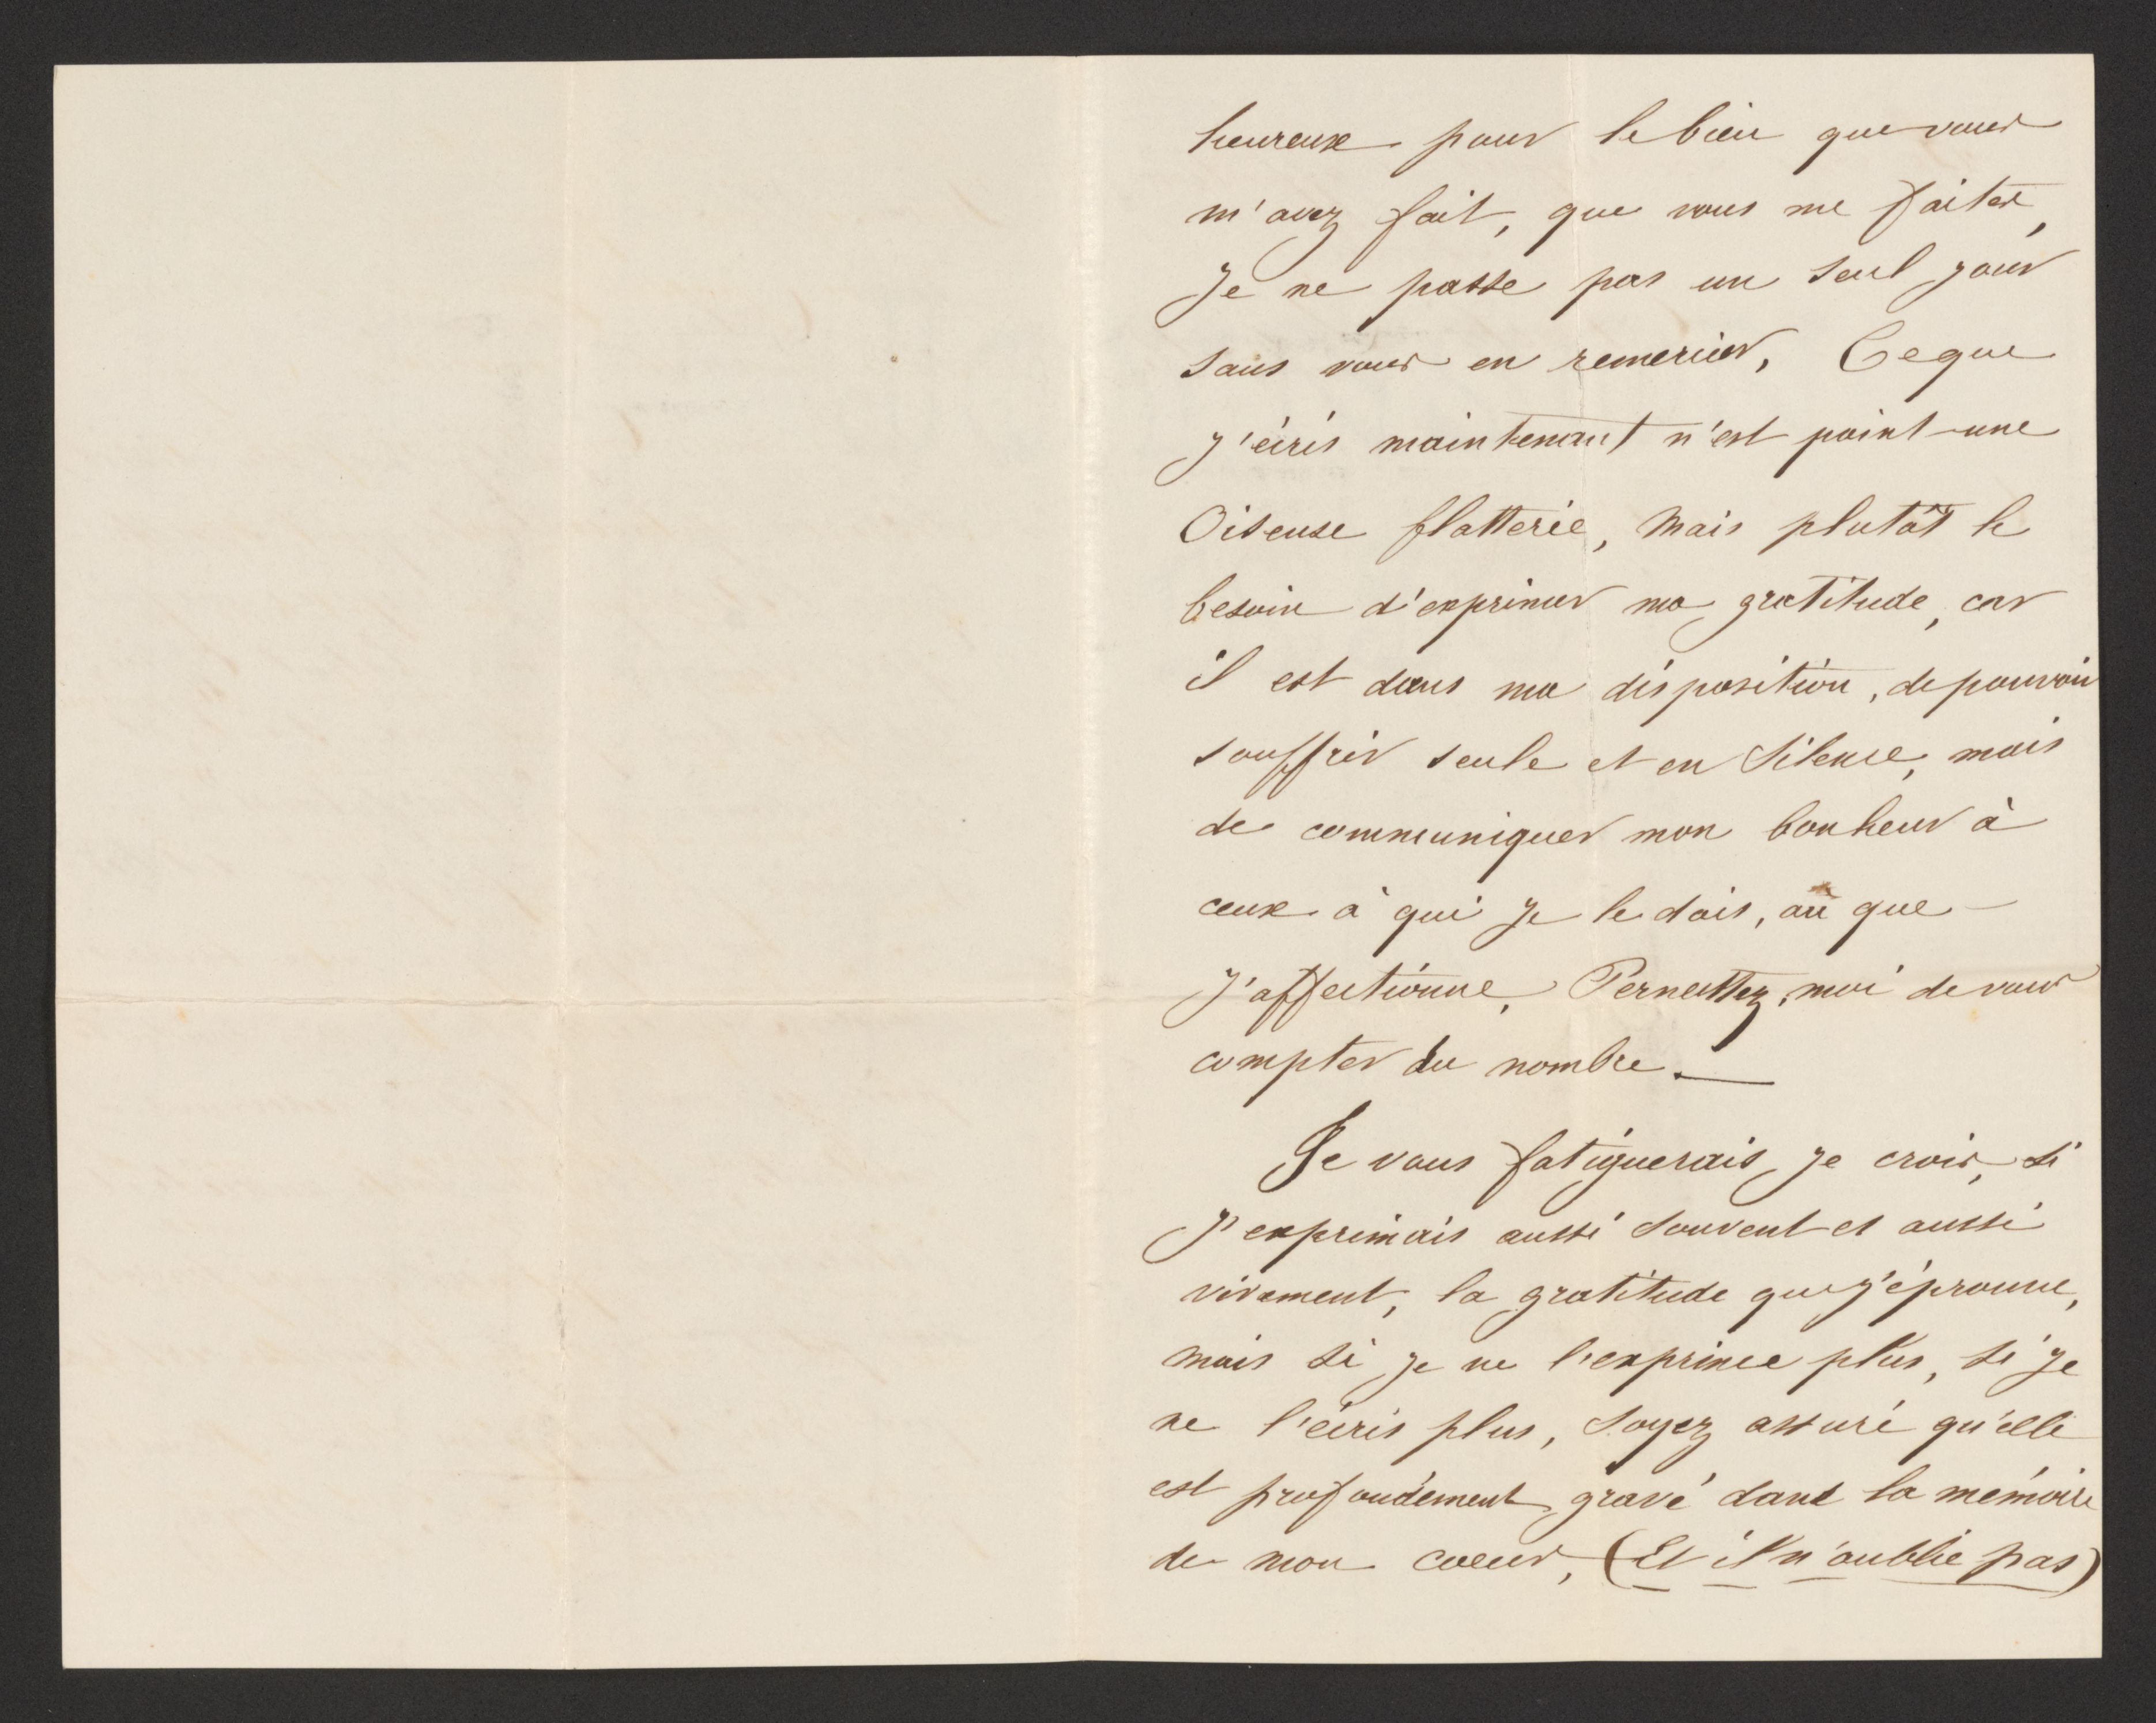 heureux pour le bien que vous
m'avez fait, que vous me faites,
Je ne passe pas un seul jour
sans vous en remercier, Ce que
j'écris maintenant n'est point une
Oiseuse flatterie, mais plutôt le
besoin d'exprimer ma gratitude, car
il est dans ma disposition, de pouvoir
souffrir seule et en Silence, mais
de communiquer mon bonheur à
ceux à qui je le dois, où que
J'affectionne, Permettez, moi de vous
compter du nombre.—
Je vous fatiguerais, je crois, si
J'exprimais aussi souvent et aussi
vivement, la gratitude que j'éprouve,
mais si je ne l'exprime plus, si je
ne l'écris plus, Soyez assuré qu'elle
est profondément gravé dans la mémoire
de mon coeur, (Et il n'oublie pas)